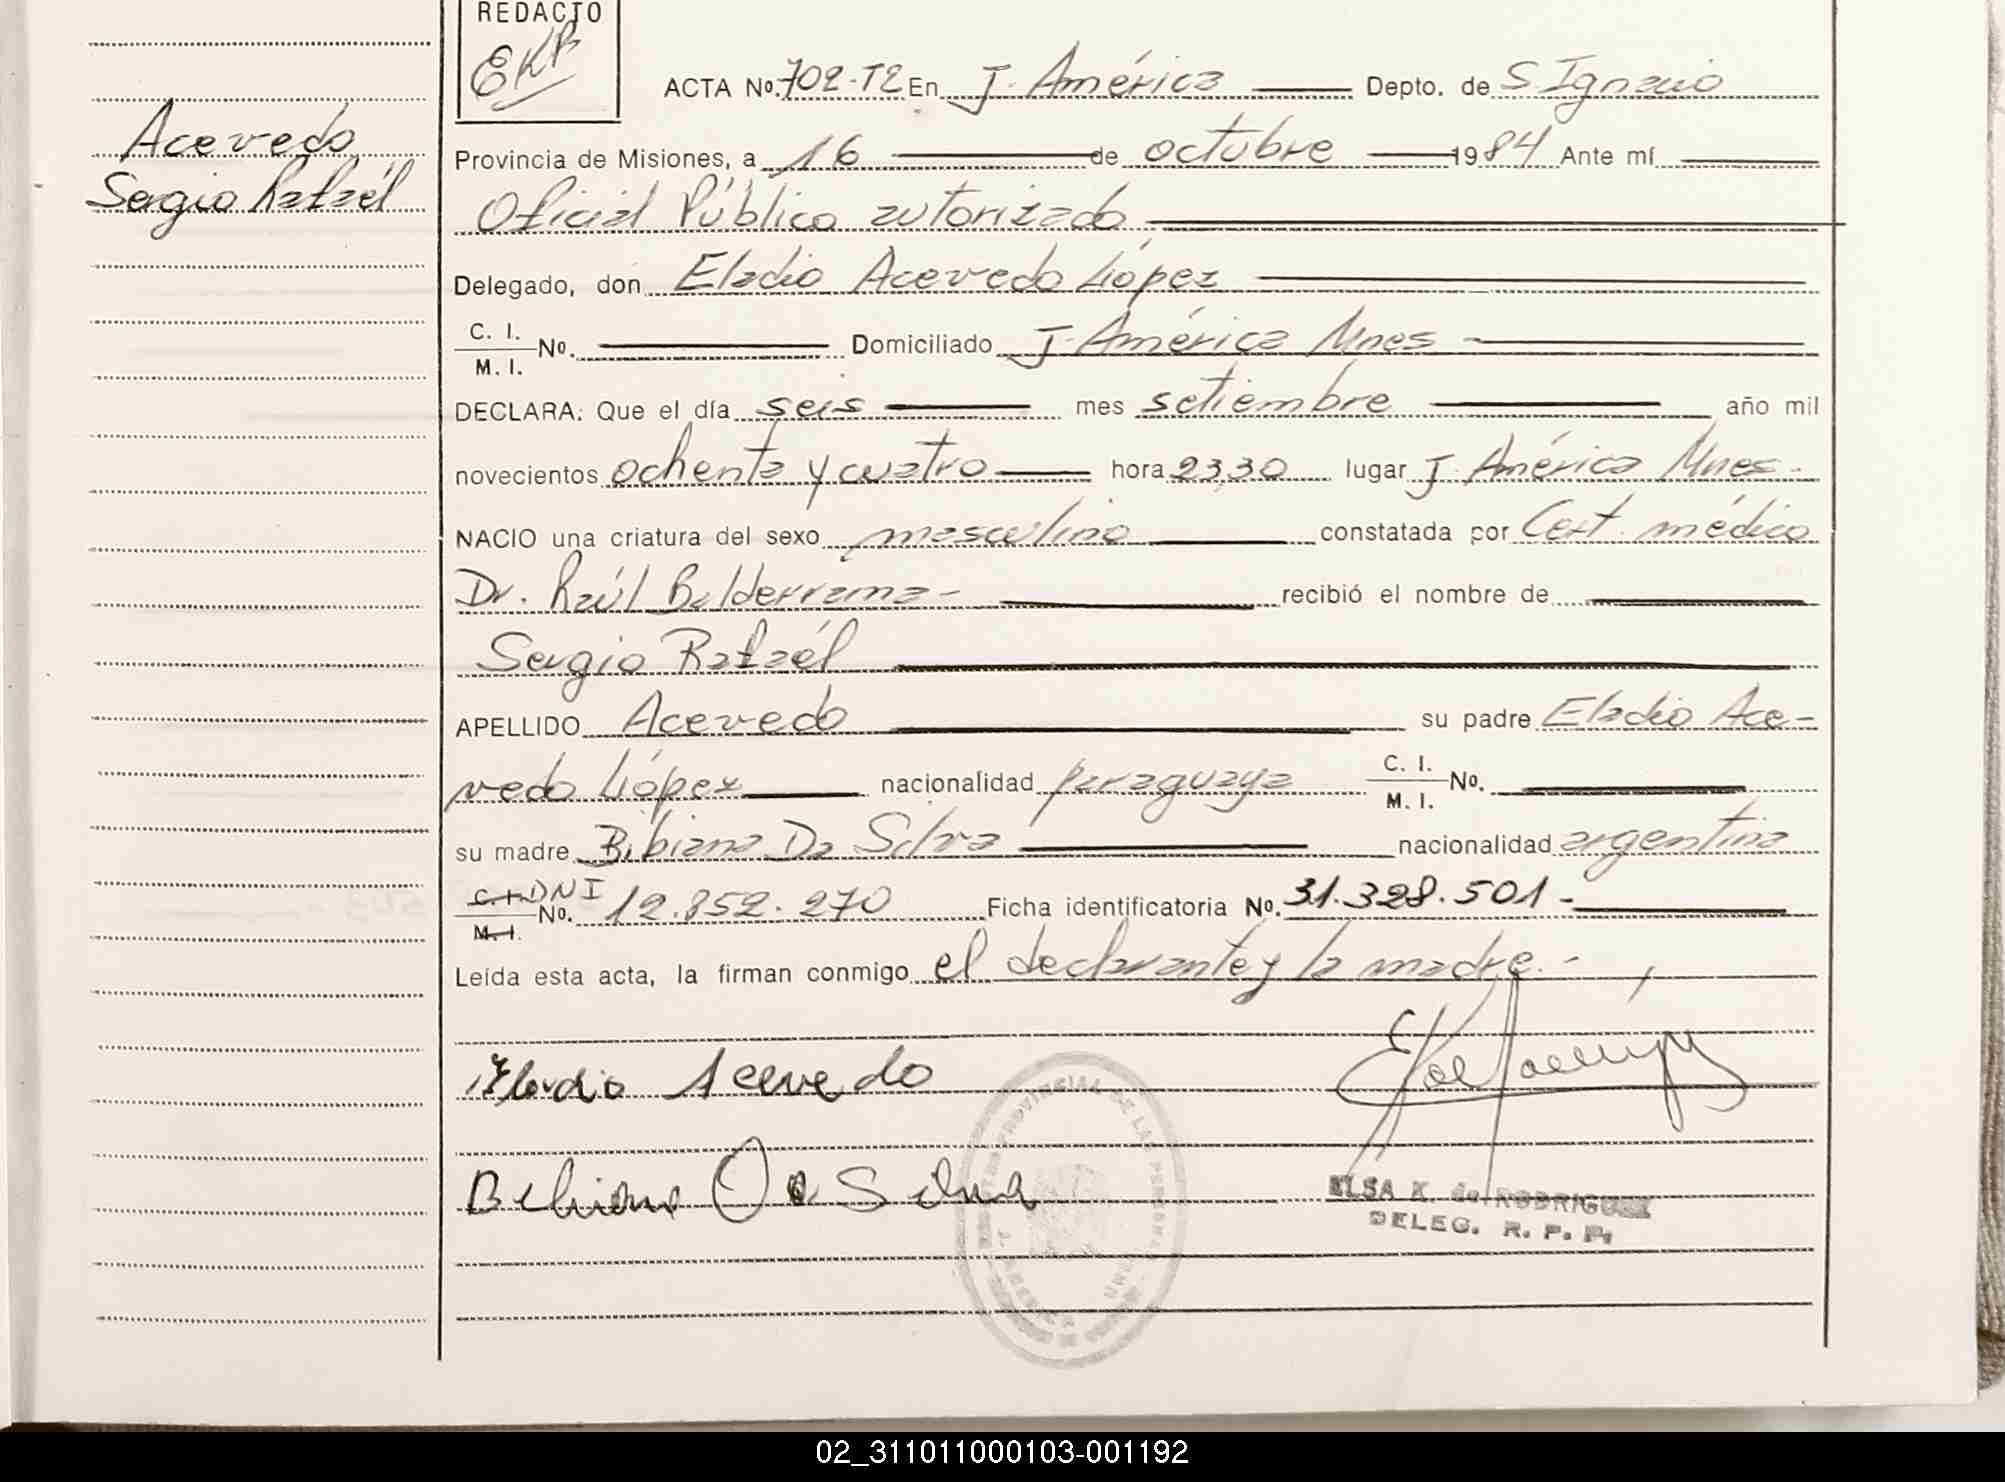 REDACTO
EKR
ACTA No. 702-T2 En J. América Depto. de S Ignacio
Acevedo
Sergio Rafaél
Provincia de Misiones, a 16 de octubre 1984 Ante mí
Oficial Público autorizado
Delegado, don Eladio Acevedo López
C. I.
M. I. No. Domiciliado J. América Mnes
DECLARA: Que el día seis mes setiembre año mil
novecientos ochenta y cuatro hora 23,30 lugar J. América Mnes-
NACIO una criatura del sexo masculino constatada por Cert. médico
Dr. Raúl Balderrama- recibió el nombre de
Sergio Rafaél
APELLIDO Acevedo su padre Eladio Ace-
vedo López nacionalidad paraguaya C. I. M. I. No.
su madre Bibiana Da Silva nacionalidad argentina
C. I. DNI
M. I. No. 12.852.270 Ficha identificatoria No. 31.328.501-
Leída esta acta, la firman conmigo el declarante y la madre.-
Eladio Acevedo
Bibiana Da Silva
ELSA K. de RODRIGUEZ
DELEG. R. P. P.
02_311011000103-001192